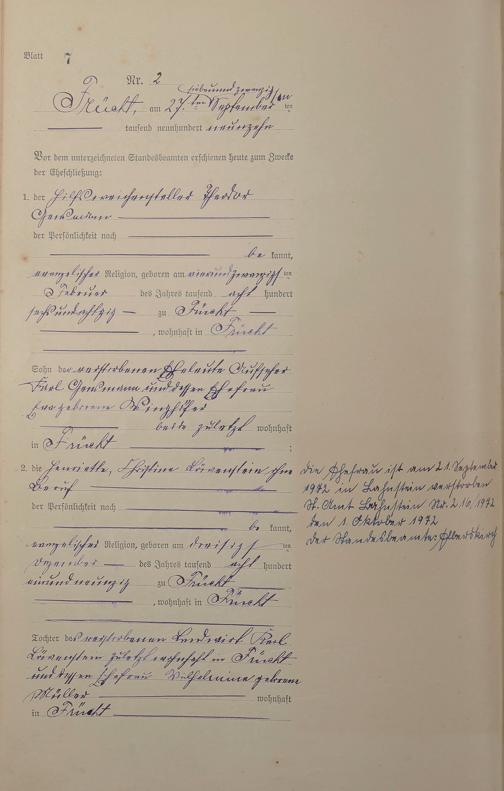 Blatt 7
Nr. 2
siebenundzwanzigsten
Frücht, am 27. ten September ten
tausend neunhundert neunzehn
Vor dem unterzeichneten Standesbeamten erschienen heute zum Zwecke
der Eheschließung:
1. der Hilfsweichensteller Theodor
der Persönlichkeit nach
be kannt,
evangelischer Religion, geboren am vierundzwanzigsten
Februar des Jahres tausend acht hundert
sechsundachtzig zu Frücht
, wohnhaft in Frücht
Sohn des verstorbenen Eheleute Aufseher
Karl und dessen Ehefrau
geborene
beide zuletzt wohnhaft
in Frücht ;
2. die Henriette, Christine Löwenstein ohne
Beruf
der Persönlichkeit nach
be kannt,
evangelischer Religion, geboren am dreißigsten
Dezember des Jahres tausend acht hundert
einundneunzig zu Frücht
, wohnhaft in Frücht
Tochter des verstorbenen Landwirt Karl
Löwenstein zuletzt wohnhaft in Frücht
und dessen Ehefrau Wilhelmine geborene
Müller wohnhaft
in Frücht
die Ehefrau ist am 21. September
1972 in Lahnstein verstorben
St. Amt Lahnstein Nr. 216/1972
den 1. Oktober 1972
der Standesbeamte: